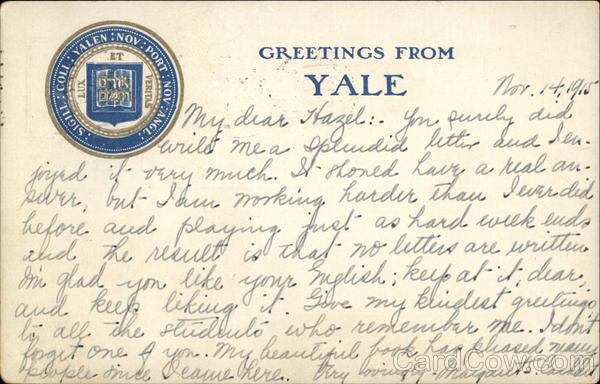 SIGILL · COLL · YALEN · NOV · PORT · NOV · ANGL ·
LUX ET VERITAS
GREETINGS FROM
YALE
Nov. 14, 1915
My dear Hazel:- You surely did
write me a splendid letter and I en-
joyed it very much. It shoned have a real an-
swer, but I am working harder than I ever did
before and playing just as hard week ends
and the result is that no letters are written
I'm glad you like your English; keep at it, dear,
and keep liking it. Give my kindest greetings
to all the students who remember me. I don't
forget one of you. My beautiful book has pleased many
people since I came here. Very
CardCow.com